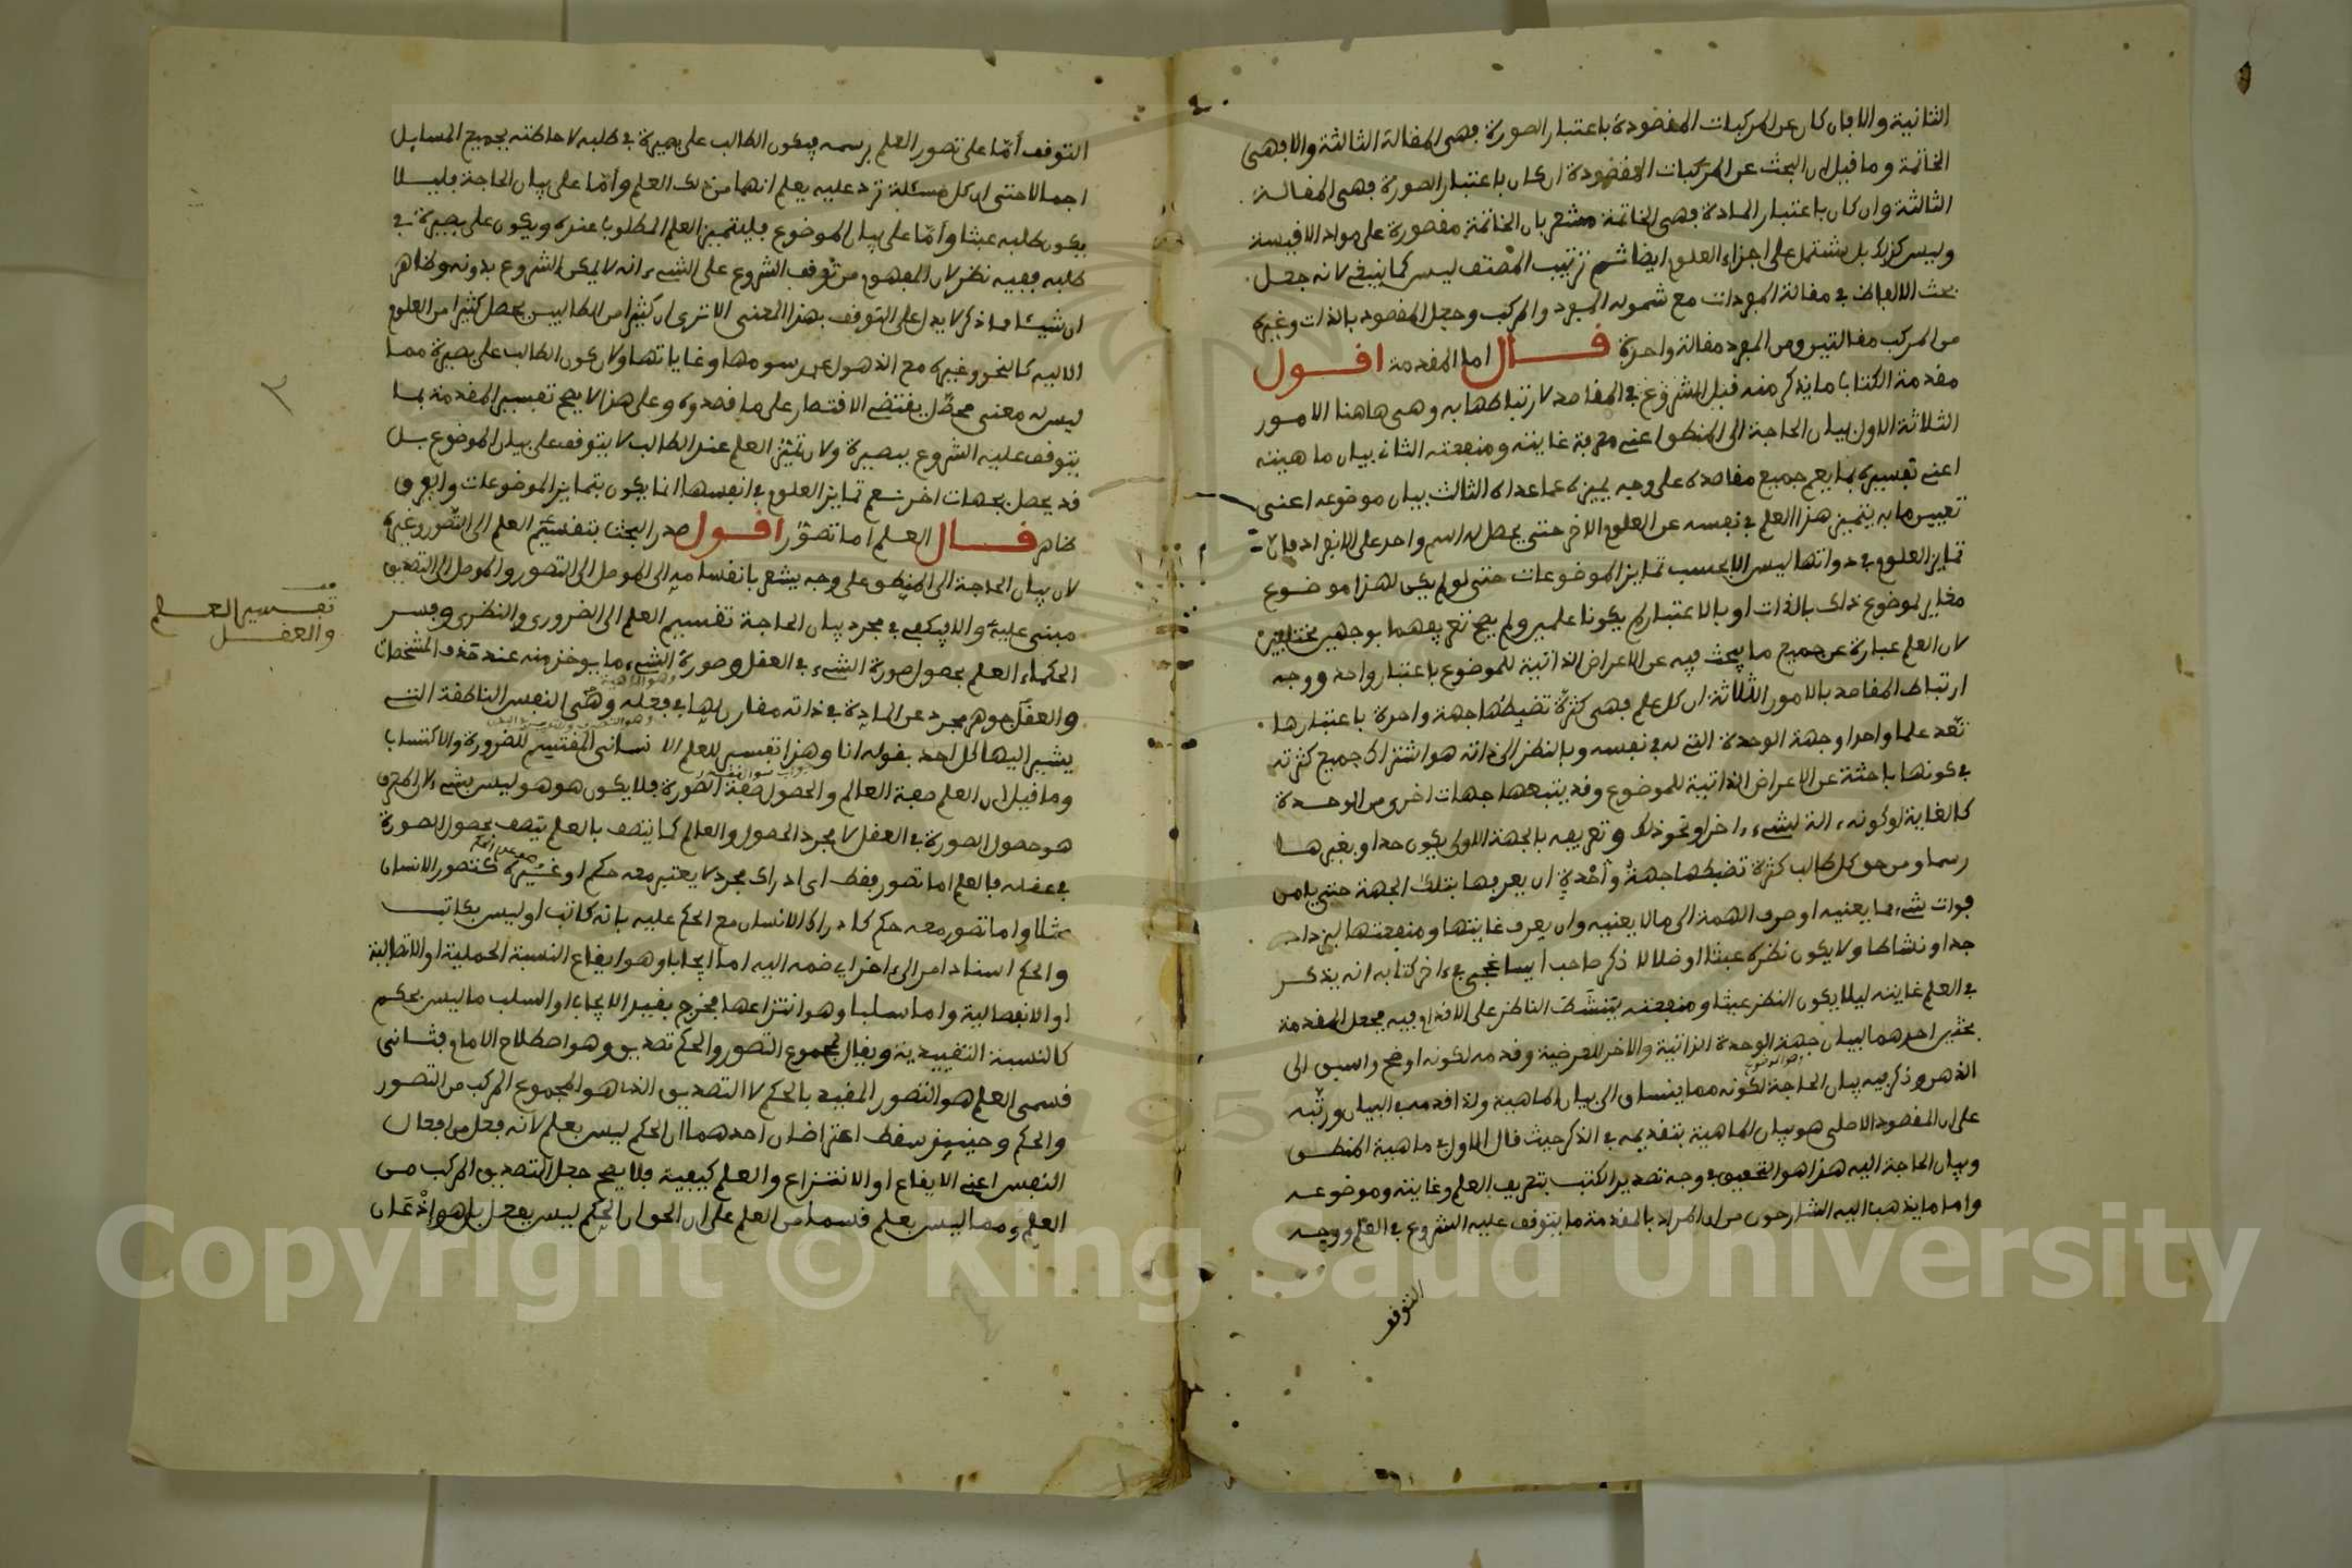 الثانية والا فان كان عن المركبات المقصودة باعتبار الصورة فهى المقالة الثالثة والا فهى
الخاتمة وما قيل ان البحث عن المركبات المقصودة ان كان باعتبار الصورة فهى المقالة
الثالثة وان كان باعتبار المادة فهى الخاتمة مشعر بان الخاتمة مقصورة على مواد الاقيسة
وليس كذلك بل يشتمل على اجزاء العلوم ايضا ثم ترتيب المصنف ليس كما ينبغى لانه جعل
بحث الالفاظ فى مقالة المفردات مع شموله المفرد والمركب وجعل المقصود بالذات وغيره
من المركب مقالتين ومن المفرد مقالة واحدة قال اما المقدمة اقول
مقدمة الكتاب ما يذكر منه قبل الشروع فى المقاصد لارتباطها به وهى هاهنا الامور
الثلاثة الاول بيان الحاجة الى المنطق اعنى معرفة غايته ومنفعته الثانى بيان ماهيته
اعنى تفسيره بما يعم جميع مقاصده على وجه يميزه عما عداه الثالث بيان موضوعه اعنى
تعيين ما به يتميز هذا العلم فى نفسه عن العلوم الاخر حتى يحصل له اسم واحد على الانفراد فان
تمايز العلوم فى ذواتها ليس الا بحسب تمايز الموضوعات حتى لو لم يكن لهذا موضوع
مغاير لموضوع ذاك بالذات او بالاعتبار لم يكونا علمين ولم يصح تعريفهما بوجهين مختلفين
لان العلم عبارة عن جميع ما يبحث فيه عن الاعراض الذاتية للموضوع باعتبار واحد ووجه
ارتباط المقاصد بالامور الثلاثة ان كل علم فهى كثرة تضبطها جهة واحدة باعتبارها
تعد علما واحدا وجهة الوحدة التى له فى نفسه وبالنظر الى ذاته هو اشتراك جميع كثرته
فى كونها باحثة عن الاعراض الذاتية للموضوع وقد يتبعها جهات اخرى من الوحدة
كالغاية لو كونه الة لشىء اخر او نحو ذلك وتعريفه بالجهة الاولى يكون حدا وبغيرها
رسما ومن حق كل طالب كثرة تضبطها جهة واحدة ان يعرفها بتلك الجهة حتى يامن
فوات شىء مما يعنيه او صرف الهمة الى ما لا يعنيه وان يعرف غايتها ومنفعتها ليزداد
جدا ونشاطا ولا يكون نظره عبثا او ضلالا ذكر صاحب ايساغجى فى اخر كتابه انه يذكر
فى العلم غايته ليلا يكون النظر عبثا ومنفعته يتنشط الناظر على الاقدام فيه فجعل المقدمة
بحثين احدهما لبيان جهة الوحدة الذاتية والاخر للعرضية وقدمه لكونه اوضح واسبق الى
الذهن وذكر فيه بيان الحاجة لكونه مما ينساق الى بيان الماهية ولذا قدمه فى البيان ورتبه
على ان المقصود الاصلى هو بيان الماهية بتقديمه فى الذكر حيث قال الاول فى ماهية المنطق
وبيان الحاجة اليه هذا هو التحقيق فى وجه تصدير الكتب بتعريف العلم وغايته وموضوعه
واما ما يذهب اليه الشارحون من ان المراد بالمقدمة ما يتوقف عليه الشروع فى العلم ووجه
التوقف
التوقف اما على تصور العلم برسمه فيكون الطالب على بصيرة فى طلبه لاحاطته بجميع المسايل
اجمالا حتى ان كل مسئلة ترد عليه يعلم انها من ذلك العلم واما على بيان الحاجة فليلا
يكون طلبه عبثا واما على بيان الموضوع فليتميز العلم المطلوب عنده ويكون على بصيرة فى
طلبه ففيه نظر لان المفهوم من توقف الشروع على الشىء انه لا يمكن الشروع بدونه وظاهر
ان شيئا مما ذكر لا يدل على التوقف بهذا المعنى الا ترى ان كثيرا من الطالبين يحصل كثيرا من العلوم
الالية كالنحو وغيره مع الذهول عن رسومها وغاياتها ولان كون الطالب على بصيرة مما
ليس له معنى محصل يقتضى الاقتصار على ما قصدوه وعلى هذا لا يصح تفسير المقدمة بما
يتوقف عليه الشروع ببصيرة ولان تميز العلم عند الطالب لا يتوقف على بيان الموضوع بل
قد يحصل بجهات اخر نعم تمايز العلوم فى انفسها انما يكون بتمايز الموضوعات والفرق
ظاهر قال العلم اما تصور اقول صدر البحث بتقسيم العلم الى التصور وغيره
لان بيان الحاجة الى المنطق على وجه يشعر بانقسامه الى الموصل الى التصور والموصل الى التصديق
مبنى عليه والا فيكفى فى مجرد بيان الحاجة تقسيم العلم الى الضرورى والنظرى وفسر
الحكماء العلم بحصول صورة الشىء فى العقل وصورة الشىء ما يوخذ منه عند حذف المشخصات
والعقل جوهر مجرد عن المادة فى ذاته مقارن لها فى فعله وهى النفس الناطقة التى
يشير اليها كل احد بقوله انا وهذا تفسير للعلم الانسانى المنقسم للضرورة والاكتساب
وما قيل ان العلم صفة العالم والحصول صفة الصورة فلا يكون هو هو ليس بشىء لان المعرف
هو حصول الصورة فى العقل لا مجرد الحصول والعالم كما يتصف بالعلم يتصف بحصول الصورة
فى عقله فالعلم اما تصور فقط اى ادراك مجرد لا يعتبر معه حكم او غيره كتصور الانسان
مثلا واما تصور معه حكم كادراك الانسان مع الحكم عليه بانه كاتب او ليس بكاتب
والحكم اسناد امر الى اخر اى ضمه اليه اما ايجابا وهو ايقاع النسبة الحملية او الاتصالية
او الانفصالية واما سلبا وهو انتزاعها فخرج بقيد الايجاب او السلب ما ليس بحكم
كالنسبة التقييدية ويقال لمجموع التصور والحكم تصديق وهو اصطلاح الامام فثانى
قسمى العلم هو التصور المقيد بالحكم لا التصديق الذى هو المجموع المركب من التصور
والحكم وحينيذ سقط اعتراضان احدهما ان الحكم ليس بعلم لانه فعل من افعال
النفس اعنى الايقاع او الانتزاع والعلم كيفية فلا يصح جعل التصديق المركب من
العلم ومما ليس بعلم قسما من العلم على ان الحق ان الحكم ليس بفعل بل هو اذعان
تفسير العلم
والعقل
Copyright © King Saud University